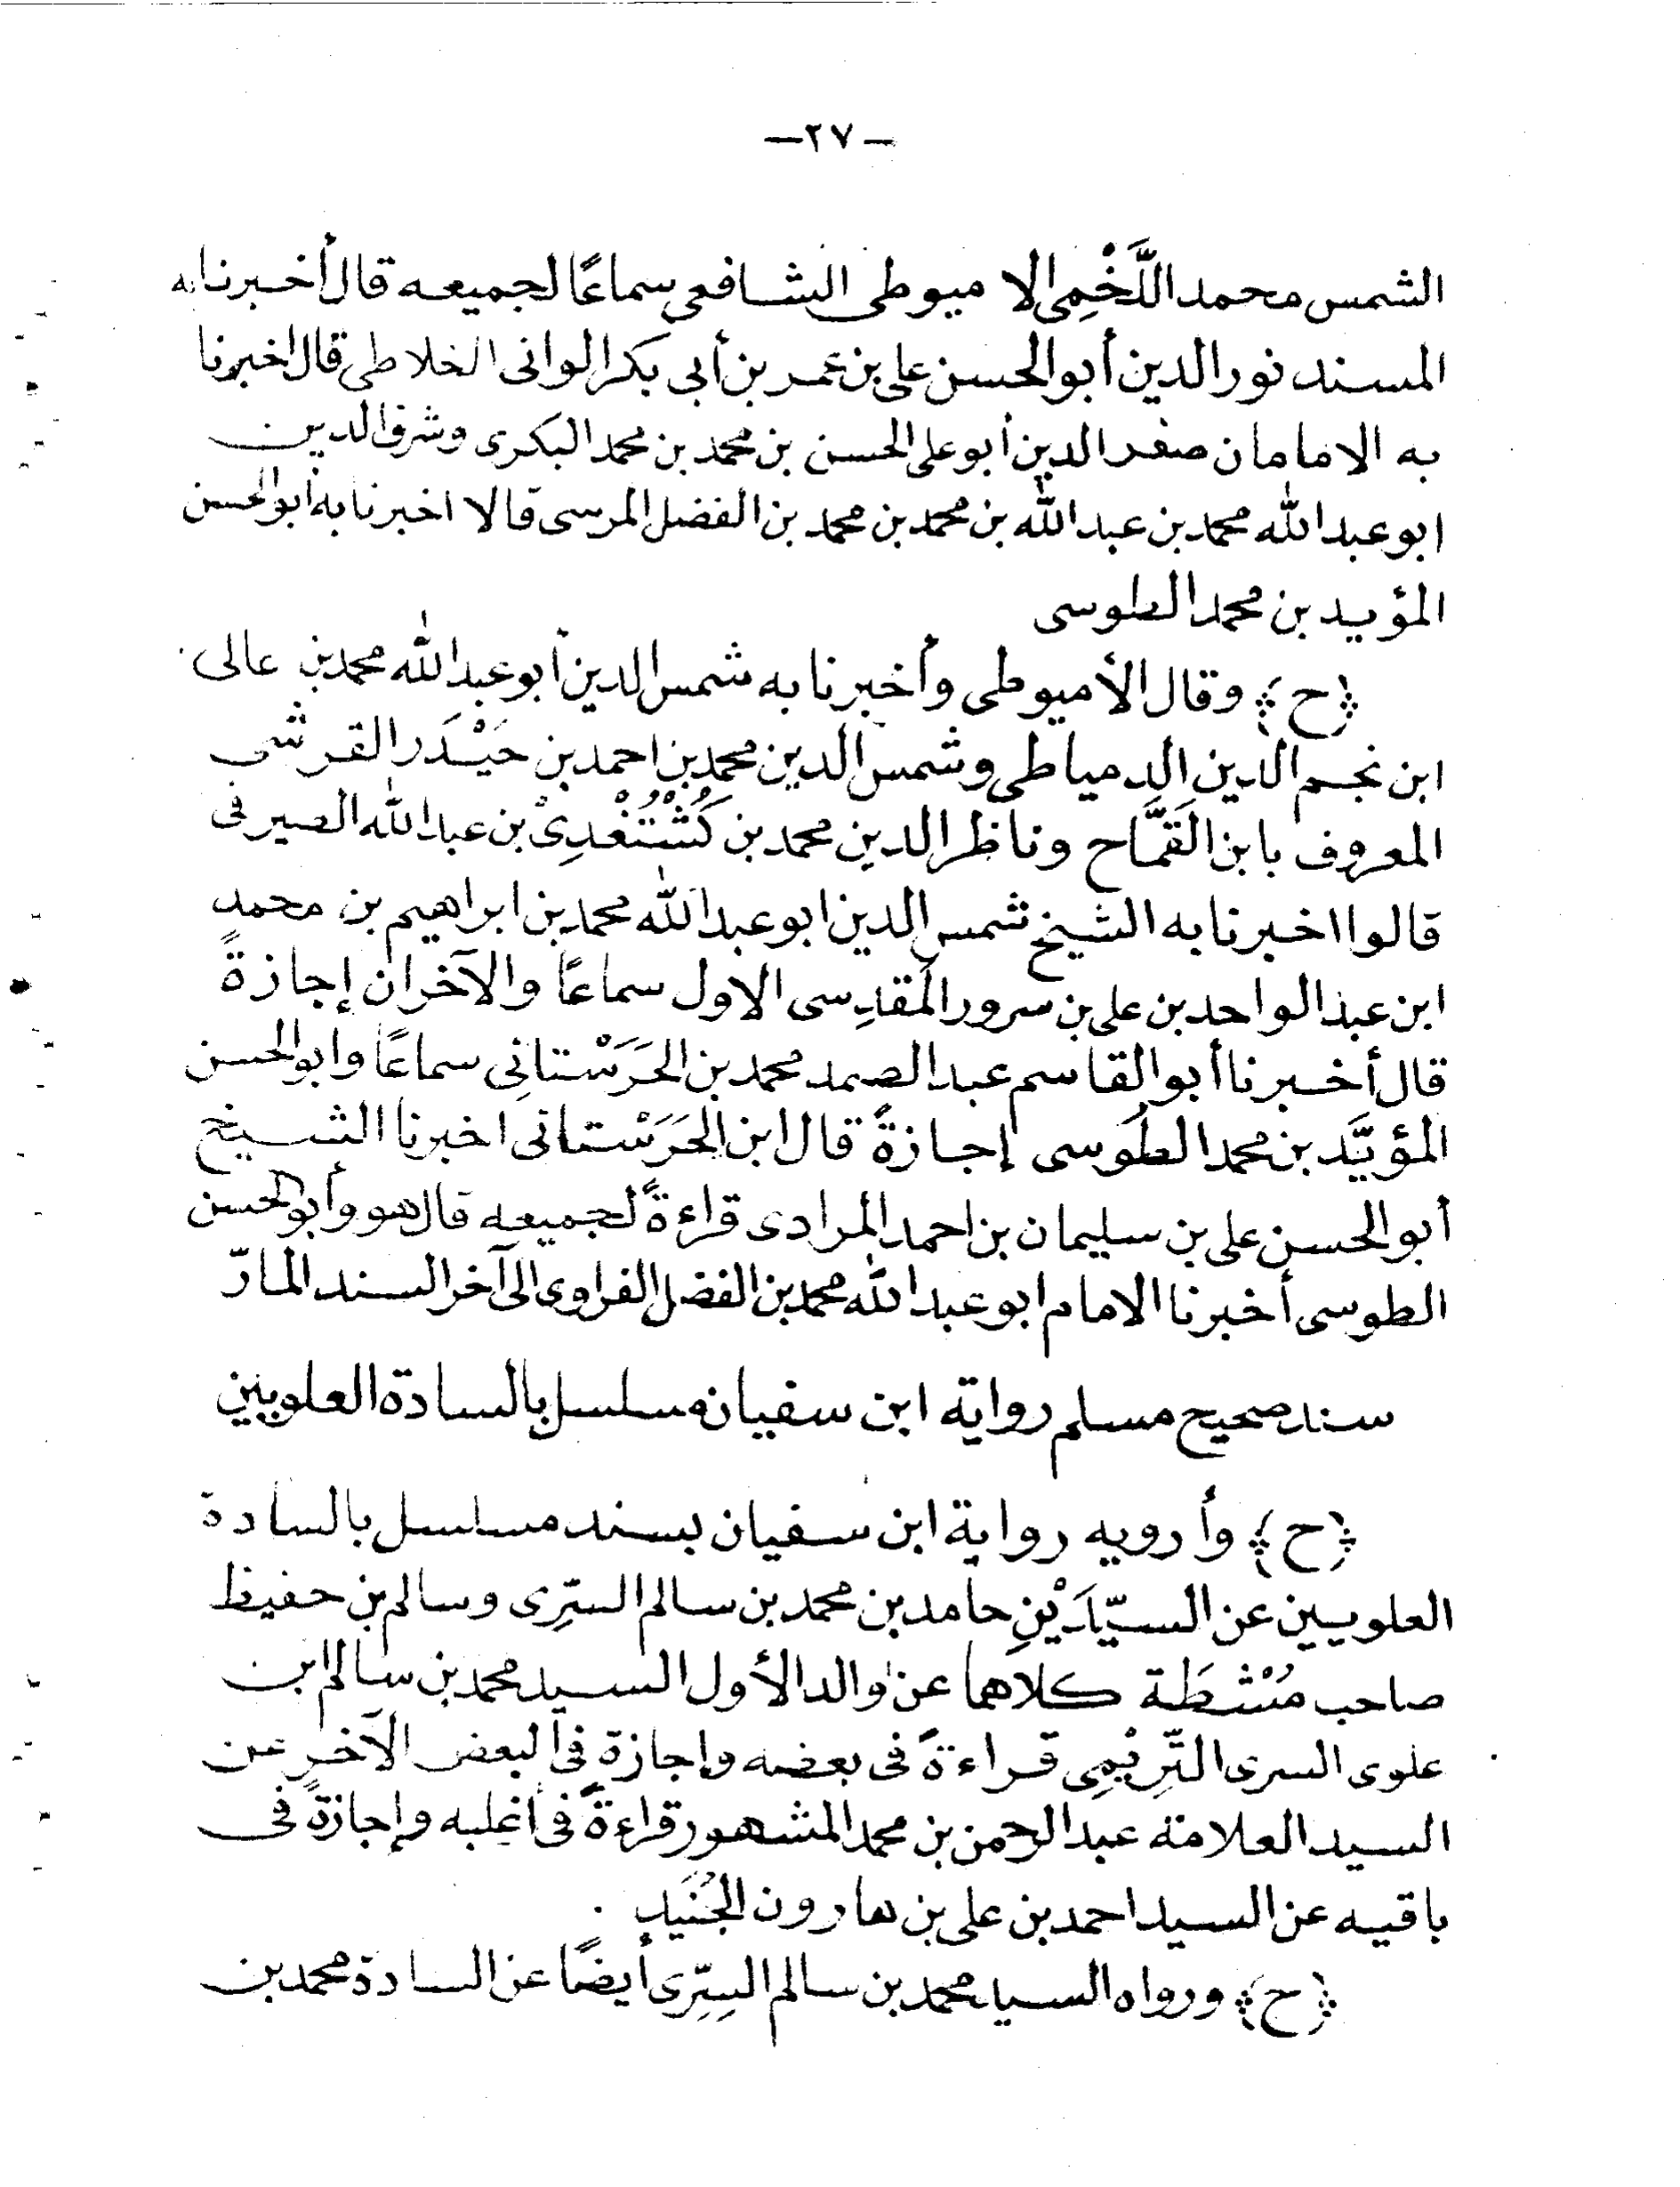 —٢٧—
الشمس محمد اللَّخْمِى الاميوطى الشافعى سماعًا لجميعه قال أخبرنا به
المسند نور الدين أبو الحسن على بن عمر بن أبى بكر الوانى الخلاطى قال اخبرنا
به الامامان صدر الدين أبو على الحسن بن محمد بن محمد البكرى وشرف الدين
ابو عبد الله محمد بن عبد الله بن محمد بن محمد بن الفضل المرسى قالا اخبرنا به ابو الحسن
المؤيد بن محمد الطوسى
﴿ح﴾ وقال الأميوطى وأخبرنا به شمس الدين أبو عبد الله محمد بن عالى
ابن نجم الدين الدمياطى وشمس الدين محمد بن احمد بن حَيْدَر القرشى
المعروف بابن القَمَّاح وناظر الدين محمد بن كُشْتُغْدِىْ بن عبد الله الصيرفى
قالوا اخبرنا به الشيخ شمس الدين ابو عبد الله محمد بن ابراهيم بن محمد
ابن عبد الواحد بن على بن سرور المَقدِسى الاول سماعًا والآخران إجازةً
قال أخبرنا أبو القاسم عبد الصمد محمد بن الحَرَسْتانِى سماعًا وابو الحسن
المؤيَّد بن محمد الطُوسى إجازةً قال ابن الحَرَسْتانى اخبرنا الشيخ
أبو الحسن على بن سليمان بن احمد المرادى قراءةً لجميعه قال هو وأبو الحسن
الطوسى أخبرنا الامام ابو عبد الله محمد بن الفضل الفراوى الى آخر السند المارّ
سند صحيح مسلم رواية ابن سفيان مسلسل بالسادة العلويين
﴿ح﴾ وأرويه رواية ابن سفيان بسند مسلسل بالسادة
العلويين عن السيّدَيْنِ حامد بن محمد بن سالم السّرِى وسالم بن حفيظ
صاحب مُشْطَة كلاهما عن والد الأول السيد محمد بن سالم ابن
علوى السرى التِّرِيْمِى قراءةً فى بعضه وإجازة فى البعض الآخر عن
السيد العلامة عبد الرحمن بن محمد المشهور قراءةً فى أغلبه وإجازةً فى
باقيه عن السيد احمد بن على بن هارون الجُنَيد .
﴿ح﴾ ورواه السيد محمد بن سالم السِّرِى أيضًا عن السادة محمد بن